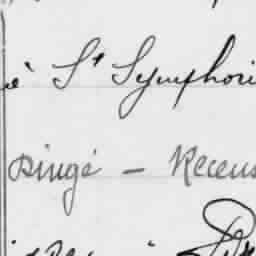 è St Symphori
Dingé — Recens